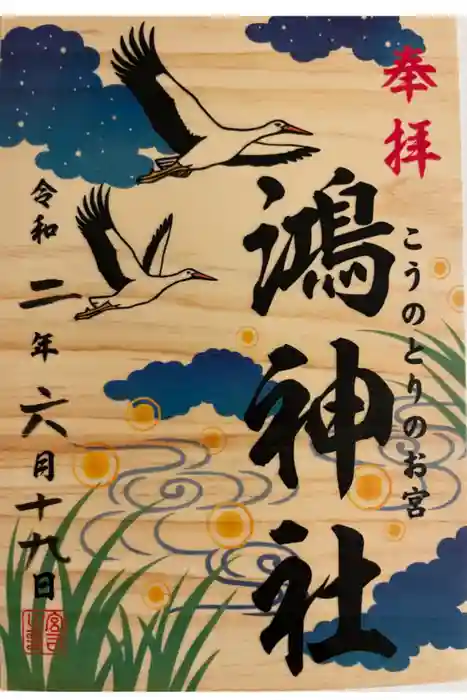 奉拝
こうのとりのお宮
鴻神社
令和二年六月十九日